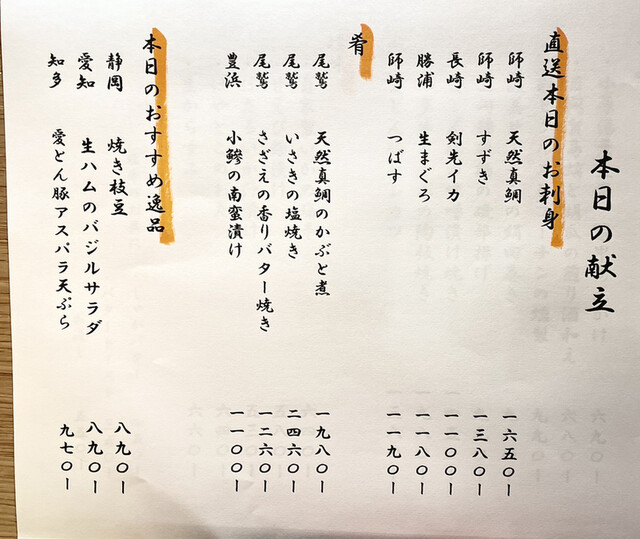 本日の献立
直送本日のお刺身
師崎 天然真鯛 一六五〇ー
師崎 すずき 一三八〇ー
長崎 剣先イカ 一一〇〇ー
勝浦 生まぐろ 一一八〇ー
師崎 つばす 一一九〇ー
肴
尾鷲 天然真鯛のかぶと煮 一九八〇ー
尾鷲 いさきの塩焼き 二四六〇ー
尾鷲 さざえの香りバター焼き 一二六〇ー
豊浜 小鯵の南蛮漬け 一一〇〇ー
本日のおすすめ逸品
静岡 焼き枝豆 八九〇ー
愛知 生ハムのバジルサラダ 八九〇ー
知多 愛とん豚アスパラ天ぷら 九七〇ー